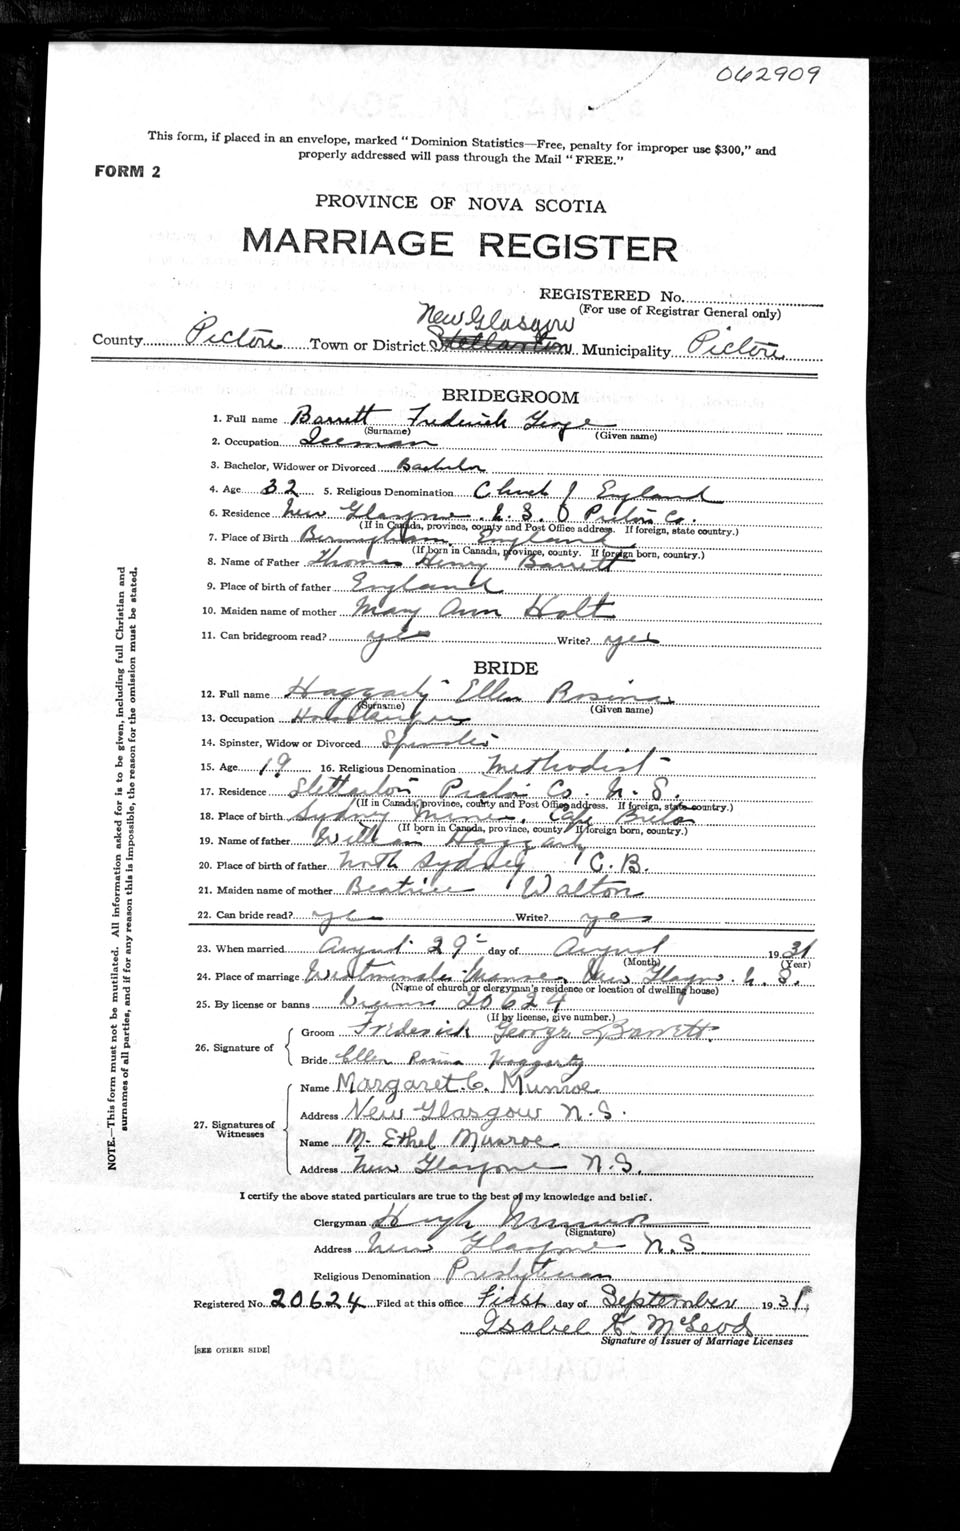 062909
This form, if placed in an envelope, marked "Dominion Statistics—Free, penalty for improper use $300," and
properly addressed will pass through the Mail "FREE."
FORM 2
PROVINCE OF NOVA SCOTIA
MARRIAGE REGISTER
REGISTERED No.
(For use of Registrar General only)
New Glasgow
County Pictou Town or District Stellarton Municipality Pictou
BRIDEGROOM
1. Full name Barrett Frederick George
(Surname) (Given name)
2. Occupation Iceman
3. Bachelor, Widower or Divorced Bachelor
4. Age 32 5. Religious Denomination Church of England
6. Residence New Glasgow N.S. Pictou Co.
(If in Canada, province, county and Post Office address. If foreign, state country.)
7. Place of Birth Birmingham, England
(If born in Canada, province, county. If foreign born, country.)
8. Name of Father Thomas Henry Barrett
9. Place of birth of father England
10. Maiden name of mother Mary Ann Holt
11. Can bridegroom read? yes Write? yes
BRIDE
12. Full name Haggarty Ellen Rosina
(Surname) (Given name)
13. Occupation
14. Spinster, Widow or Divorced Spinster
15. Age 19 16. Religious Denomination Methodist
17. Residence Stellarton Pictou Co. N.S.
(If in Canada, province, county and Post Office address. If foreign, state country.)
18. Place of birth Sydney Mines, Cape Breton
(If born in Canada, province, county If foreign born, country.)
19. Name of father William Haggarty
20. Place of birth of father North Sydney C.B.
21. Maiden name of mother Beatrice Walton
22. Can bride read? yes Write? yes
23. When married August 29 day of August 1931
(Month) (Year)
24. Place of marriage Westminster Manse, New Glasgow N.S.
(Name of church or clergyman's residence or location of dwelling house)
25. By license or banns License 20624
(If by license, give number.)
26. Signature of
Groom Frederick George Barrett
Bride Ellen Rosina Haggarty
27. Signatures of Witnesses
Name Margaret C. Munroe
Address New Glasgow N.S.
Name M. Ethel Munroe
Address New Glasgow N.S.
I certify the above stated particulars are true to the best of my knowledge and belief.
Clergyman Hugh Munroe
(Signature)
Address New Glasgow N.S.
Religious Denomination Presbyterian
Registered No. 20624 Filed at this office First day of September 1931
Isabel K. McLeod
Signature of Issuer of Marriage Licenses
[SEE OTHER SIDE]
NOTE.—This form must not be mutilated. All information asked for is to be given, including full Christian and
surnames of all parties, and if for any reason this is impossible, the reason for the omission must be stated.